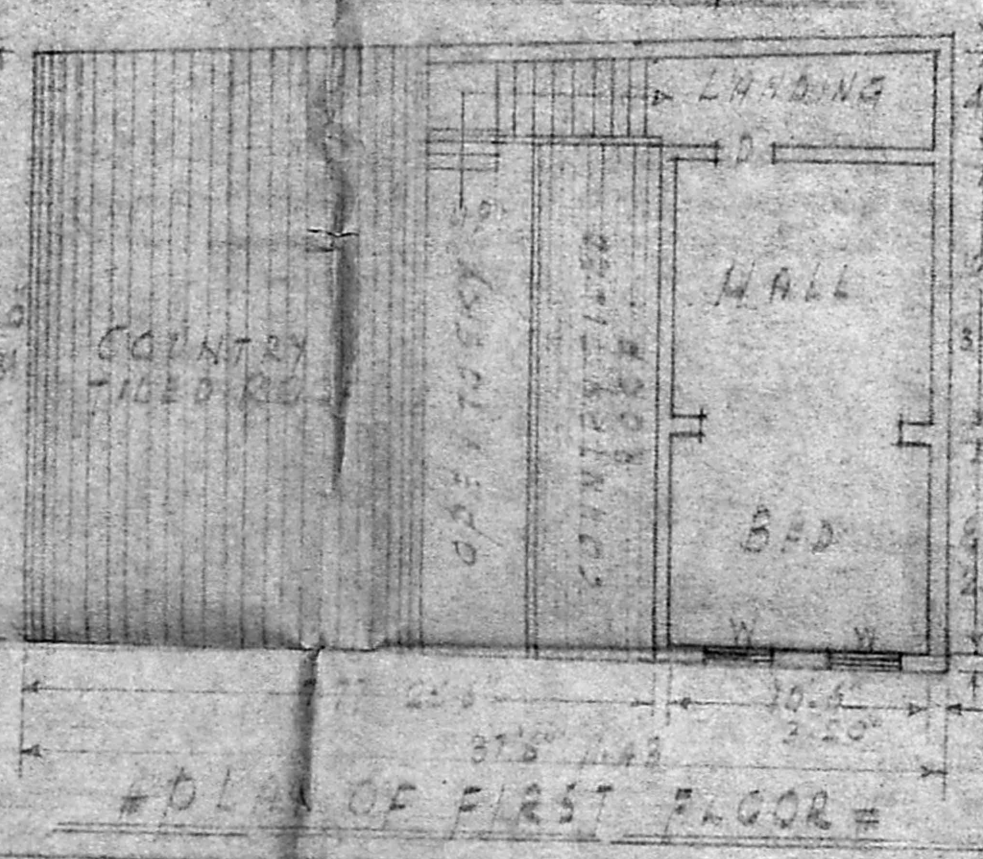 LANDING
D
UP
HALL
COUNTRY
TILED ROOF
OPEN TO SKY
COUNTRY TILED
ROOF
BED
W W
10.6"
3.20
37'.6" 11.43
# PLAN OF FIRST FLOOR #